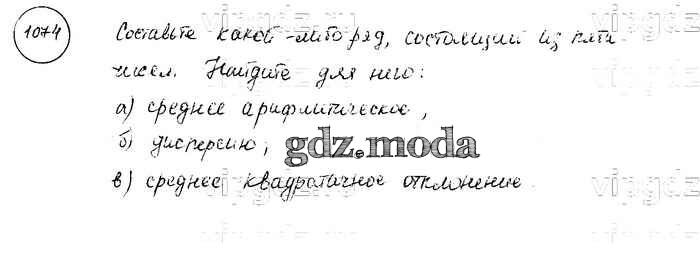 1074
Составьте какой-либо ряд, состоящий из пяти
чисел. Найдите для него:
а) среднее арифметическое,
б) дисперсию;
в) среднее квадратичное отклонение.
gdz.moda
vipgdz
vipgdz
vipgdz
vipgdz
vipgdz
vipgdz